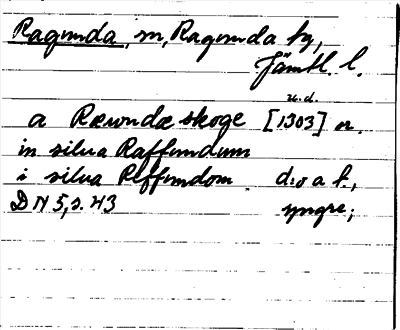 Ragunda, sn, Ragunda hg,
Jämtl. l.
u.d.
a Ræwndæ skoge [1303] n.
in silua Raffundum
i silua Reffundom d:o a f.,
DN 5, s. 43 yngre;